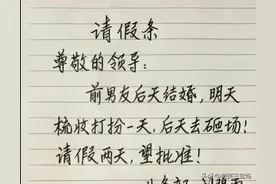 请假条
尊敬的领导：
前男友后天结婚，明天
梳妆打扮一天，后天去砸场！
请假两天，望批准！